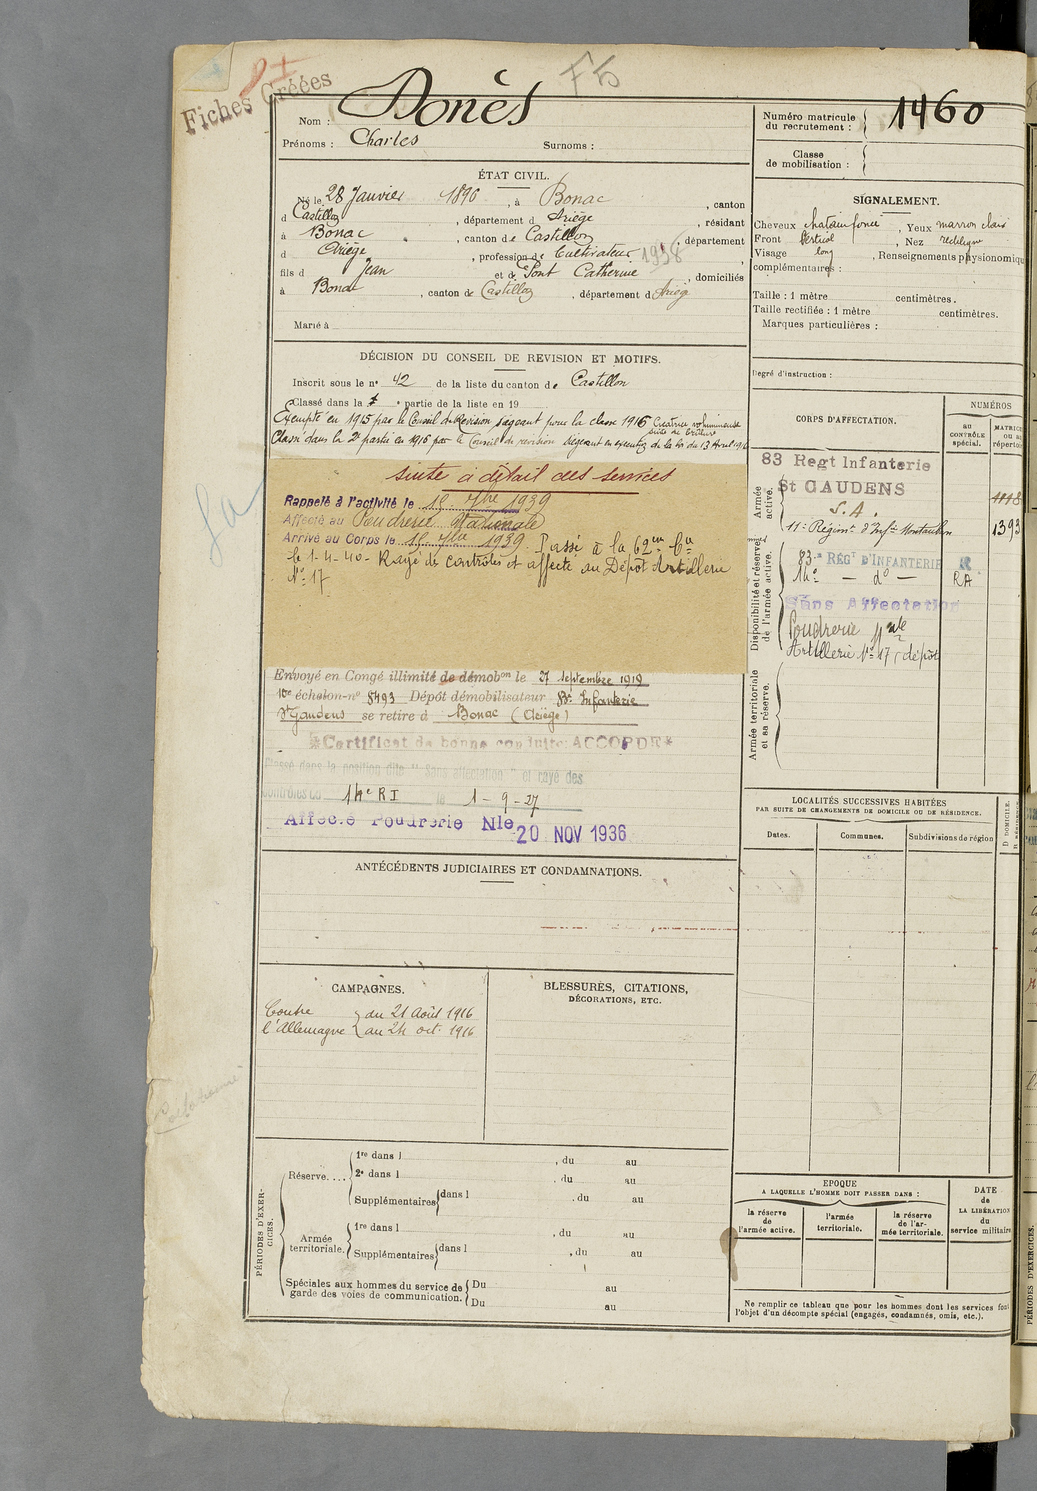 Fiches Créées
F5
Nom : Donès
Prénoms : Charles Surnoms :
Numéro matricule du recrutement : 1460
Classe de mobilisation :
ÉTAT CIVIL.
Né le 28 Janvier 1896, à Bonac, canton
d Castillon, département d Ariège, résidant
à Bonac, canton de Castillon, département
d Ariège, profession de Cultivateur 1938
fils d Jean et de Pont Catherine, domiciliés
à Bonac, canton de Castillon, département d Ariège
Marié à
SIGNALEMENT.
Cheveux chatain foncé, Yeux marron clair
Front Vertical, Nez rectiligne
Visage long, Renseignements physionomiqu
complémentaires :
Taille : 1 mètre centimètres.
Taille rectifiée : 1 mètre centimètres.
Marques particulières :
Degré d'instruction :
DÉCISION DU CONSEIL DE REVISION ET MOTIFS.
Inscrit sous le n° 42 de la liste du canton de Castillon
Classé dans la 1 e partie de la liste en 19
Exempté en 1915 par le Conseil de Revision siégeant pour la classe 1916 Cicatrice volumineuse suite de brûlure
Classé dans la 2e partie en 1916 par le Conseil de revision siégeant en exécution de la loi du 13 Avril 1916
suite à détail des services
Rappelé à l'activité le 15 7bre 1939
Affecté au Poudrerie Nationale
Arrivé au Corps le 15 7bre 1939. Passé à la 62em Cie
le 1-4-40 - Rayé des contrôles et affecté au Dépôt Artillerie
N° 17
Envoyé en Congé illimité de démobon le 27 Septembre 1919
10e échelon-n° 8793 Dépôt démobilisateur 83e Infanterie
St Gaudens se retire à Bonac (Ariège)
*Certificat de bonne conduite ACCORDÉ*
Classé dans la position dite "Sans affectation" et rayé des
contrôles du 14e RI le 1-9-27
Affecté Poudrerie Nle 20 NOV 1936
CORPS D'AFFECTATION.
NUMÉROS
au CONTRÔLE spécial.
MATRIC ou au répertoi
Armée active.
83 Regt Infanterie
St GAUDENS
S.A.
1118
11e Régimt d'Infie Montauban
1393
Disponibilité et réserve de l'armée active.
83e RÉGt D'INFANTERIE
14e — d° — RA
Sans Affectation
Poudrerie Nale
Artillerie N° 17 (dépôt
Armée territoriale et sa réserve.
LOCALITÉS SUCCESSIVES HABITÉES
PAR SUITE DE CHANGEMENTS DE DOMICILE OU DE RÉSIDENCE.
Dates. Communes. Subdivisions de région
D. DOMICILE.
R. RÉSIDENCE.
ANTÉCÉDENTS JUDICIAIRES ET CONDAMNATIONS.
CAMPAGNES.
Contre du 21 Août 1916
l'Allemagne au 24 oct. 1916
BLESSURES, CITATIONS,
DÉCORATIONS, ETC.
PÉRIODES D'EXERCICES.
Réserve.... 1re dans l , du au
2e dans l , du au
Supplémentaires dans l , du au
Armée territoriale. 1re dans l , du au
Supplémentaires dans l , du au
Spéciales aux hommes du service de garde des voies de communication. Du au
Du au
EPOQUE
A LAQUELLE L'HOMME DOIT PASSER DANS :
la réserve de l'armée active.
l'armée territoriale.
la réserve de l'armée territoriale.
DATE de LA LIBÉRATION du service militaire
Ne remplir ce tableau que pour les hommes dont les services font
l'objet d'un décompte spécial (engagés, condamnés, omis, etc.).
PÉRIODES D'EXERCICES.